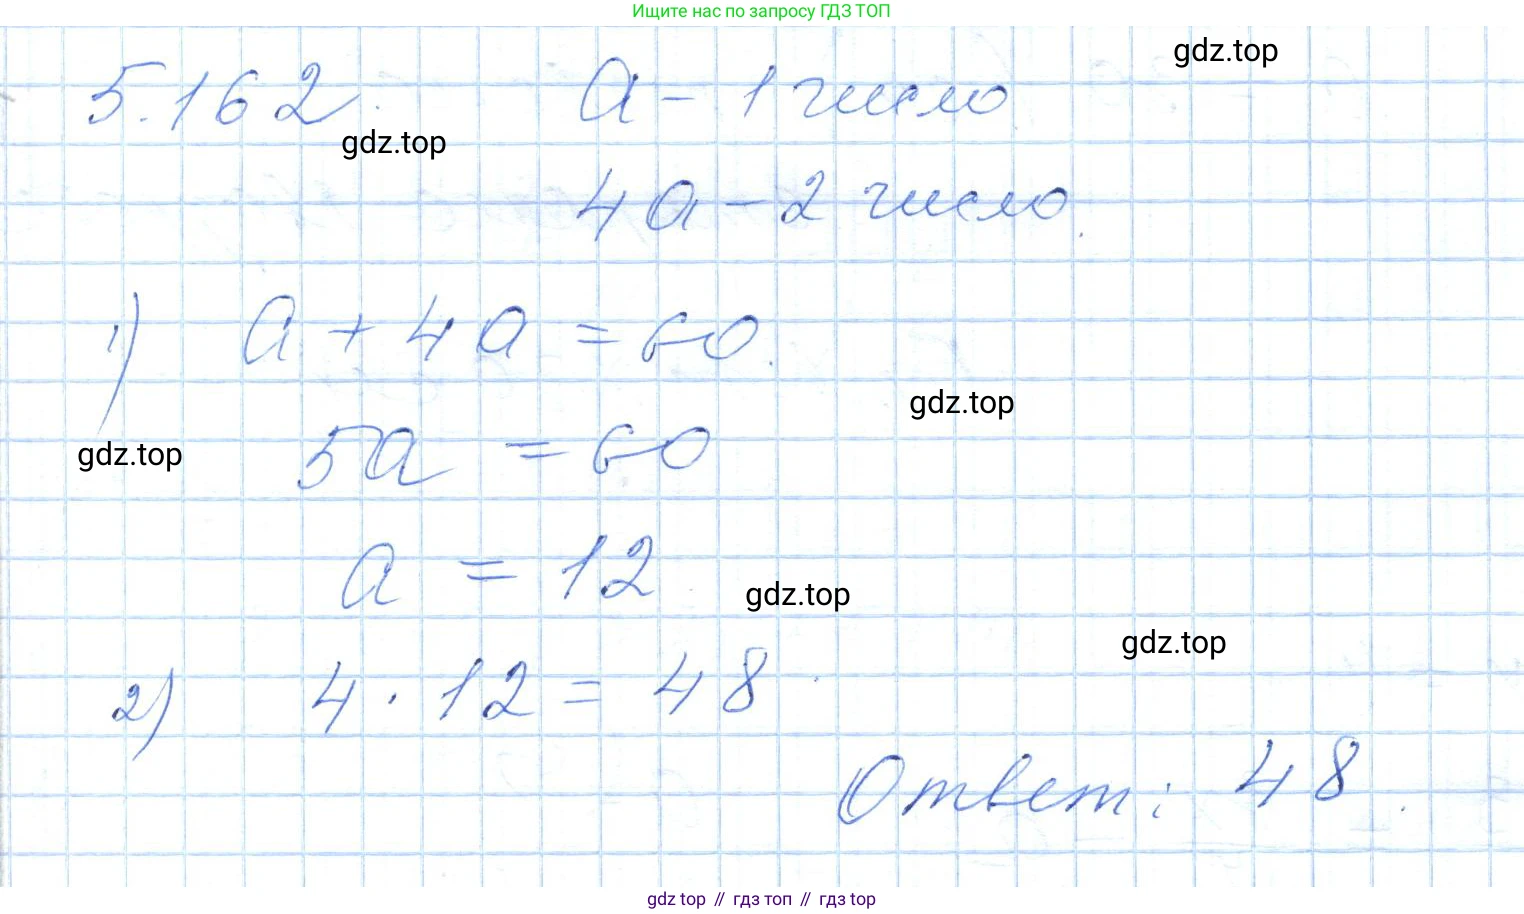 Ищите нас по запросу ГДЗ ТОП
gdz.top
5.162 a - 1 число
gdz.top
4a - 2 число.
1) a + 4a = 60.
gdz.top
5a = 60
gdz.top
a = 12
gdz.top
gdz.top
2) 4 · 12 = 48
Ответ: 48.
gdz.top // гдз топ // гдз top